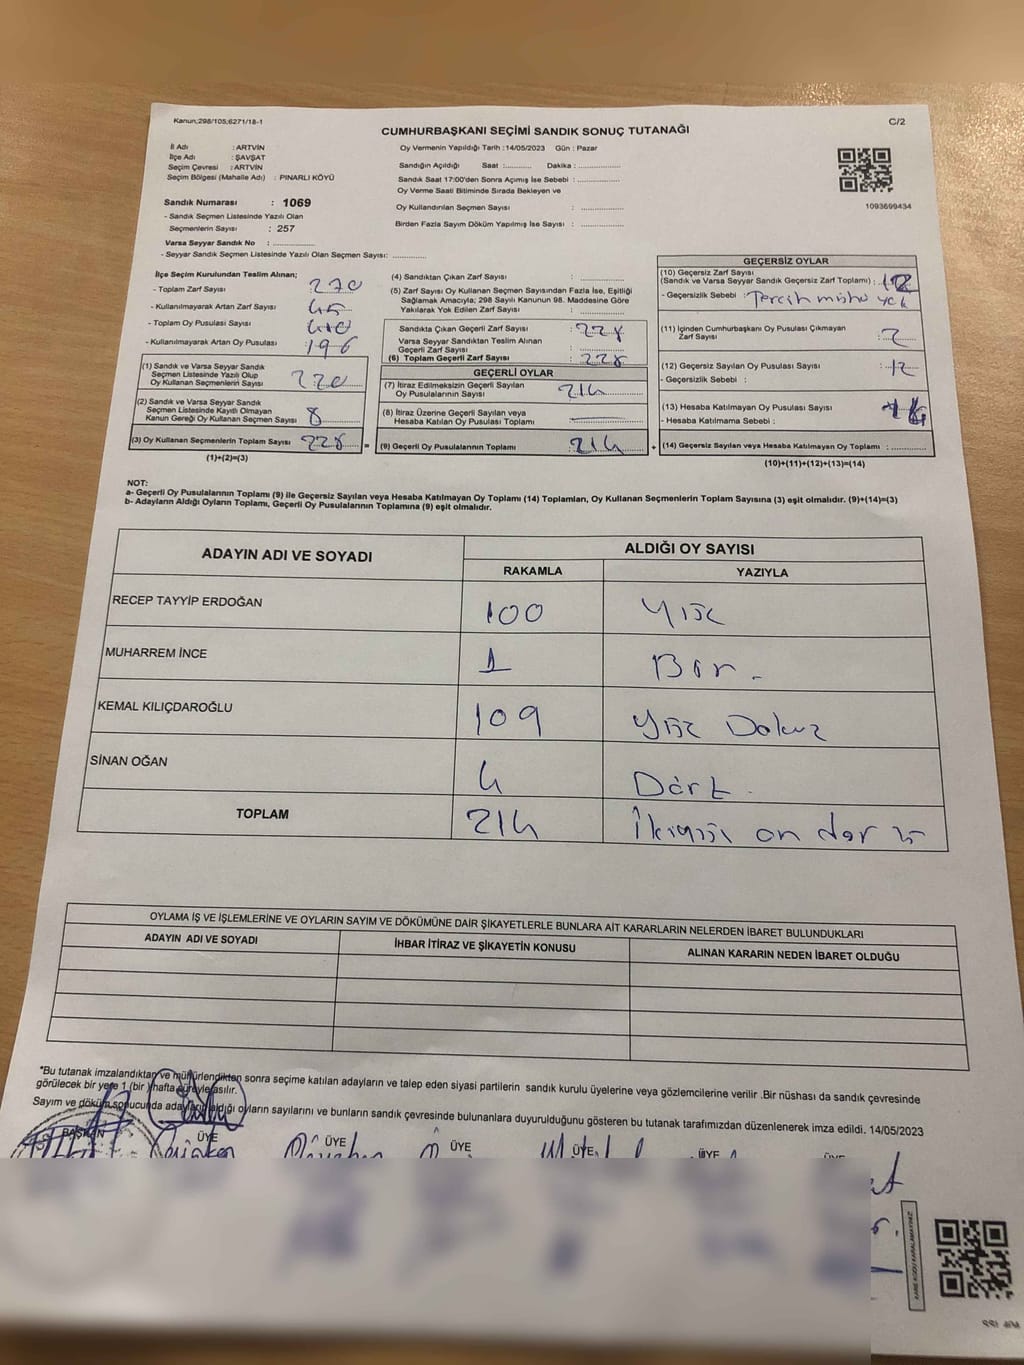 Kanun;298/105;6271/18-1
C/2
CUMHURBAŞKANI SEÇİMİ SANDIK SONUÇ TUTANAĞI
İl Adı : ARTVİN
İlçe Adı : ŞAVŞAT
Seçim Çevresi : ARTVİN
Seçim Bölgesi (Mahalle Adı) : PINARLI KÖYÜ
Sandık Numarası : 1069
- Sandık Seçmen Listesinde Yazılı Olan
Seçmenlerin Sayısı : 257
Varsa Seyyar Sandık No : ..............
- Seyyar Sandık Seçmen Listesinde Yazılı Olan Seçmen Sayısı: ............
Oy Vermenin Yapıldığı Tarih :14/05/2023 Gün : Pazar
Sandığın Açıldığı Saat :.......... Dakika : ..............
Sandık Saat 17:00'den Sonra Açımış İse Sebebi : ..............
Oy Verme Saati Bitiminde Sırada Bekleyen ve
Oy Kullandırılan Seçmen Sayısı : ..............
Birden Fazla Sayım Döküm Yapılmış İse Sayısı : ..............
1093699434
İlçe Seçim Kurulundan Teslim Alınan;
- Toplam Zarf Sayısı : 270
- Kullanılmayarak Artan Zarf Sayısı : 45
- Toplam Oy Pusulası Sayısı : 410
- Kullanılmayarak Artan Oy Pusulası : 196
(1) Sandık ve Varsa Seyyar Sandık
Seçmen Listesinde Yazılı Olup
Oy Kullanan Seçmenlerin Sayısı 220
(2) Sandık ve Varsa Seyyar Sandık
Seçmen Listesinde Kayıtlı Olmayan
Kanun Gereği Oy Kullanan Seçmen Sayısı 8
(3) Oy Kullanan Seçmenlerin Toplam Sayısı 228 =
(1)+(2)=(3)
(4) Sandıktan Çıkan Zarf Sayısı : ..............
(5) Zarf Sayısı Oy Kullanan Seçmen Sayısından Fazla İse, Eşitliği
Sağlamak Amacıyla; 298 Sayılı Kanunun 98. Maddesine Göre
Yakılarak Yok Edilen Zarf Sayısı : ..............
Sandıkta Çıkan Geçerli Zarf Sayısı : 228
Varsa Seyyar Sandıktan Teslim Alınan
Geçerli Zarf Sayısı : ..............
(6) Toplam Geçerli Zarf Sayısı : 228
GEÇERLİ OYLAR
(7) İtiraz Edilmeksizin Geçerli Sayılan
Oy Pusulalarının Sayısı : 214
(8) İtiraz Üzerine Geçerli Sayılan veya
Hesaba Katılan Oy Pusulası Toplamı :
(9) Geçerli Oy Pusulalarının Toplamı 214 +
GEÇERSİZ OYLAR
(10) Geçersiz Zarf Sayısı
(Sandık ve Varsa Seyyar Sandık Geçersiz Zarf Toplamı) :
- Geçersizlik Sebebi : Tercih mührü yok
(11) İçinden Cumhurbaşkanı Oy Pusulası Çıkmayan
Zarf Sayısı : 2
(12) Geçersiz Sayılan Oy Pusulası Sayısı : 12
- Geçersizlik Sebebi :
(13) Hesaba Katılmayan Oy Pusulası Sayısı
- Hesaba Katılmama Sebebi :
(14) Geçersiz Sayılan veya Hesaba Katılmayan Oy Toplamı : ..............
(10)+(11)+(12)+(13)=(14)
NOT:
a- Geçerli Oy Pusulalarının Toplamı (9) ile Geçersiz Sayılan veya Hesaba Katılmayan Oy Toplamı (14) Toplamları, Oy Kullanan Seçmenlerin Toplam Sayısına (3) eşit olmalıdır. (9)+(14)=(3)
b- Adayların Aldığı Oyların Toplamı, Geçerli Oy Pusulalarının Toplamına (9) eşit olmalıdır.
ADAYIN ADI VE SOYADI ALDIĞI OY SAYISI
RAKAMLA YAZIYLA
RECEP TAYYİP ERDOĞAN 100 Yüz
MUHARREM İNCE 1 Bir.
KEMAL KILIÇDAROĞLU 109 Yüz Dokuz
SİNAN OĞAN 4 Dört.
TOPLAM 214 İkiyüz on dört
OYLAMA İŞ VE İŞLEMLERİNE VE OYLARIN SAYIM VE DÖKÜMÜNE DAİR ŞİKAYETLERLE BUNLARA AİT KARARLARIN NELERDEN İBARET BULUNDUKLARI
ADAYIN ADI VE SOYADI İHBAR İTİRAZ VE ŞİKAYETİN KONUSU ALINAN KARARIN NEDEN İBARET OLDUĞU
"Bu tutanak imzalandıktan ve mühürlendikten sonra seçime katılan adayların ve talep eden siyasi partilerin sandık kurulu üyelerine veya gözlemcilerine verilir .Bir nüshası da sandık çevresinde
görülecek bir yere 1 (bir )hafta süreyle asılır.
Sayım ve döküm sonucunda adayların aldığı oyların sayılarını ve bunların sandık çevresinde bulunanlara duyurulduğunu gösteren bu tutanak tarafımızdan düzenlenerek imza edildi. 14/05/2023
BAŞKAN ÜYE ÜYE ÜYE ÜYE ÜYE ÜYE